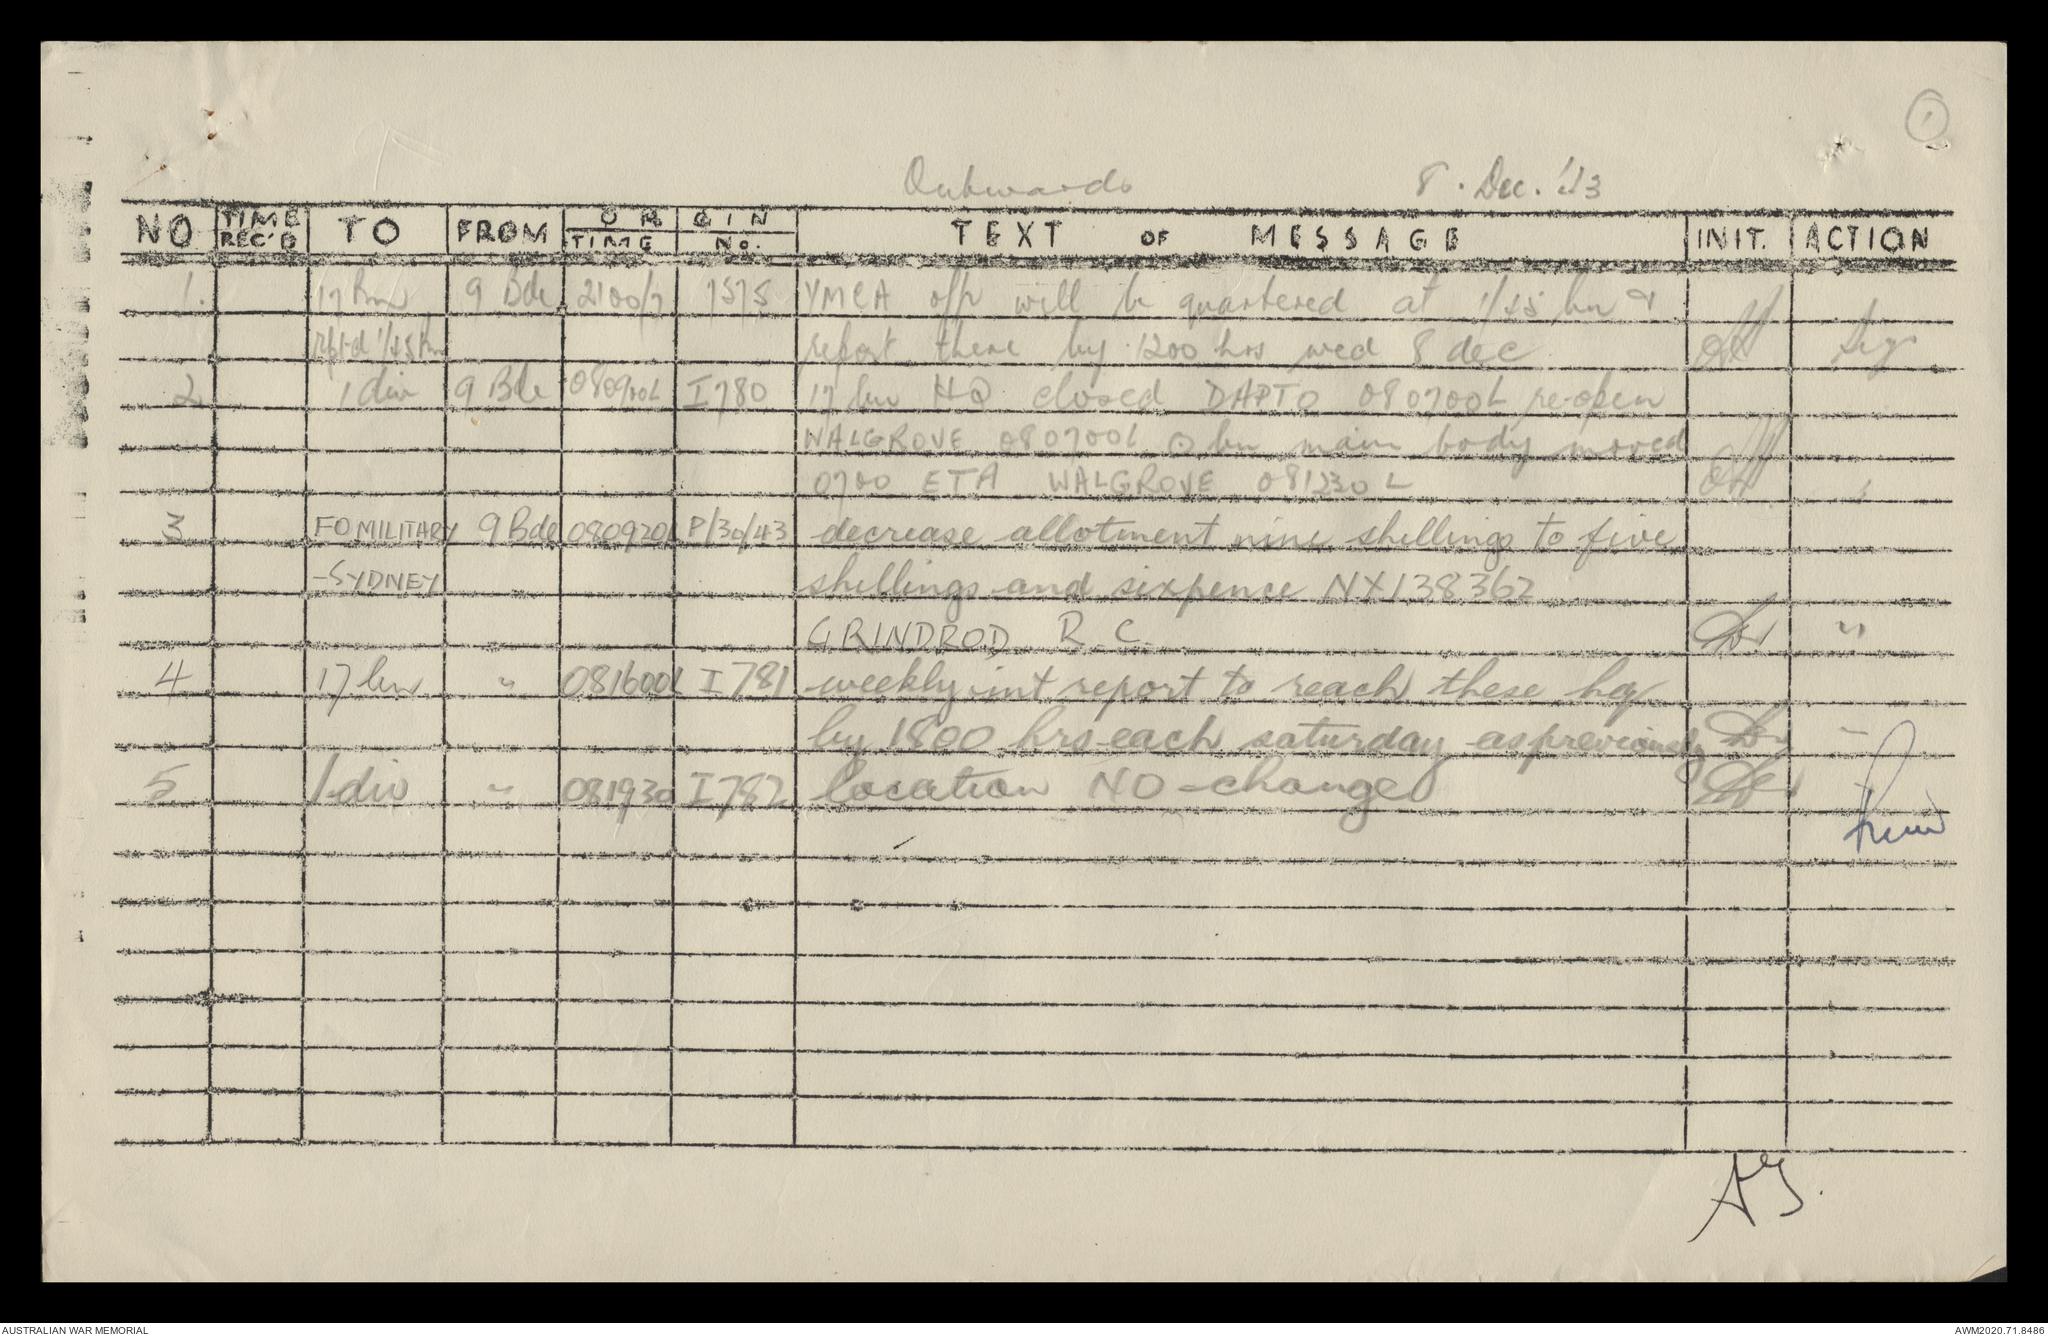 1
Outwards 8. Dec. '43
NO TIME REC'D TO FROM ORIGIN TIME No. TEXT OF MESSAGE INIT. ACTION
1. 17 Bn 9 Bde 2100/7 7575 YMCA offr will be quartered at 1/45 bn &
rptd 1/45 Bn report there by 1200 hrs wed 8 dec Sig
2 1 div 9 Bde 080900L I780 17 bn HQ closed DAPTO 080700L re-open
WALGROVE 080700L ⊙ bn main body moved
0700 ETA WALGROVE 081230L
3 FO MILITARY 9 Bde 080920L P/30/43 decrease allotment nine shillings to five
-SYDNEY shillings and sixpence NX138362
GRINDROD R. C. "
4 17 bn " 081600L I781 weekly int report to reach these hq
by 1800 hrs each saturday as previously "
5 1 div " 081930 I782 location NO-change
AUSTRALIAN WAR MEMORIAL AWM2020.71.8486